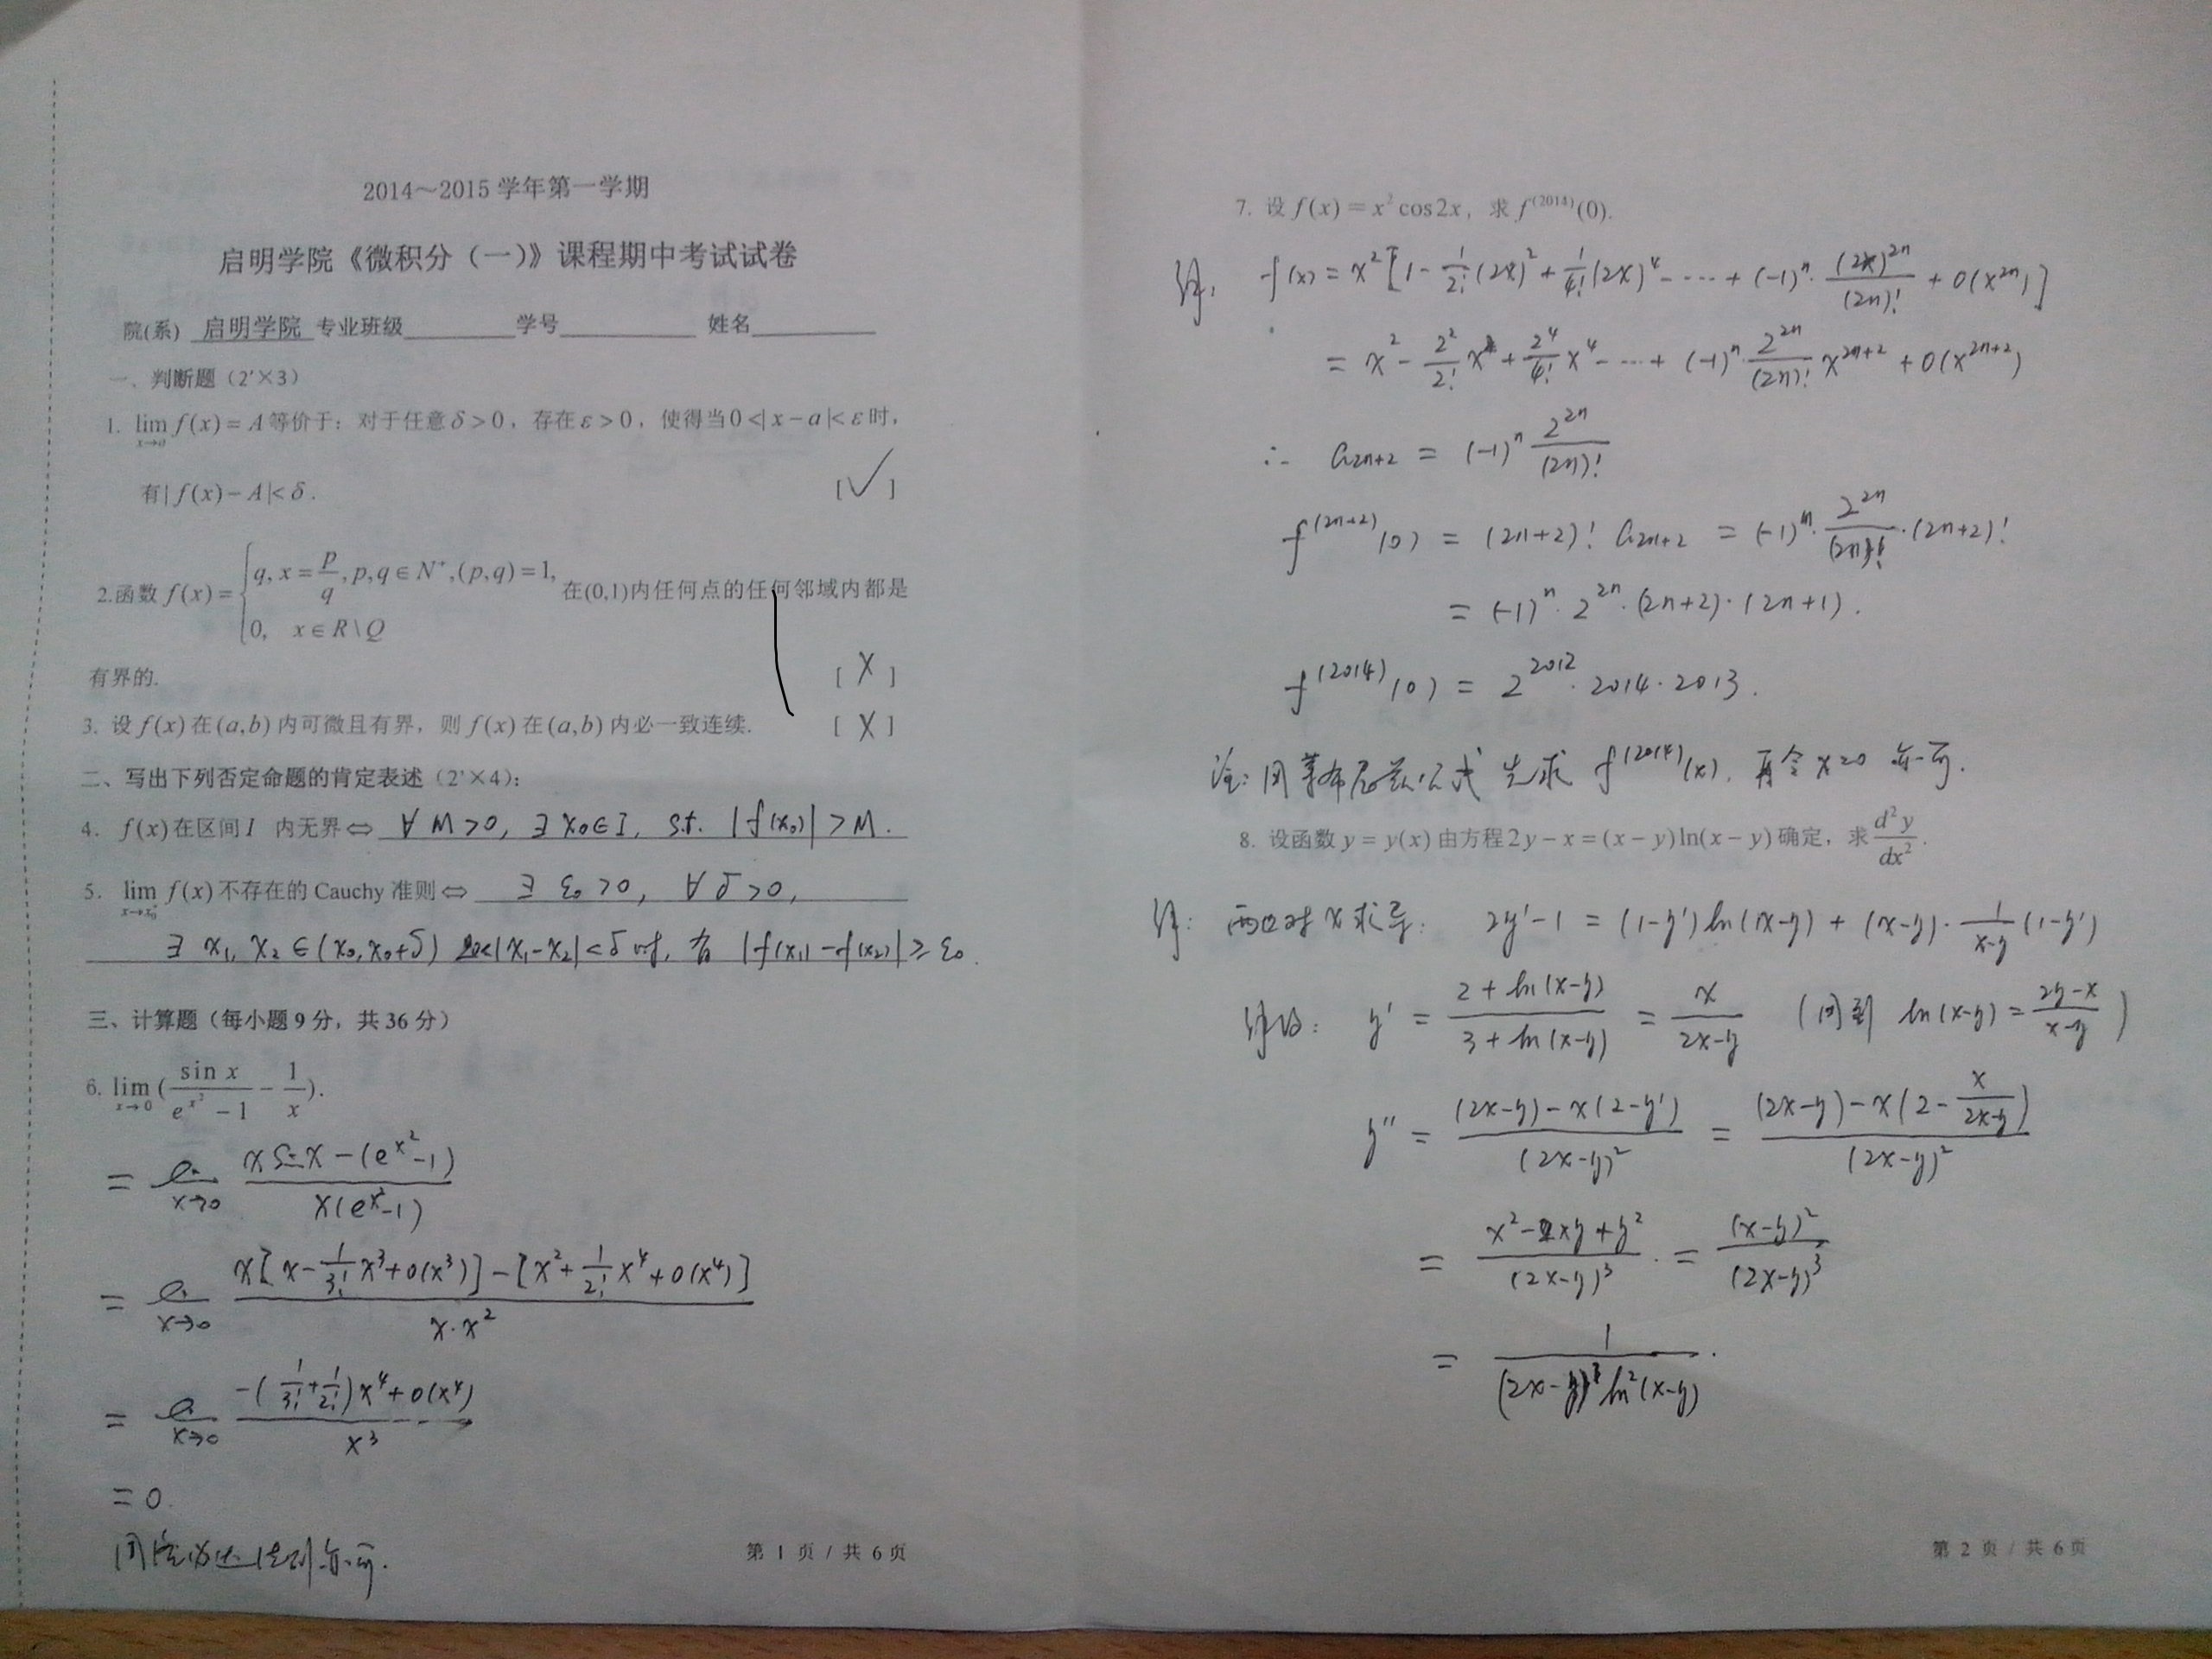 2014～2015 学年第一学期
启明学院《微积分（一）》课程期中考试试卷
院(系) 启明学院 专业班级________学号________ 姓名________
一、判断题（2'×3）
1. lim_{x→a} f(x) = A 等价于：对于任意 δ > 0，存在 ε > 0，使得当 0 <| x − a |< ε 时，
有 | f(x) − A |< δ . [✓]
2.函数 f(x) = { q, x = p/q, p, q ∈ N⁺, (p,q) = 1, 在(0,1)内任何点的任何邻域内都是
0, x ∈ R \ Q
有界的. [X]
3. 设 f(x) 在 (a,b) 内可微且有界，则 f(x) 在 (a,b) 内必一致连续. [X]
二、写出下列否定命题的肯定表述（2'×4）：
4. f(x) 在区间 I 内无界 ⇔ ∀ M>0, ∃ x₀∈I, s.t. |f(x₀)| > M.
5. lim_{x→x₀⁺} f(x) 不存在的 Cauchy 准则 ⇔ ∃ ε₀>0, ∀ δ>0,
∃ x₁, x₂ ∈ (x₀, x₀+δ) |x₁-x₂|<δ 时, 有 |f(x₁)-f(x₂)| ≥ ε₀.
三、计算题（每小题 9 分，共 36 分）
6. lim_{x→0} ( sin x / (e^{x²} − 1) − 1/x ).
= lim_{x→0} [x sin x − (e^{x²}−1)] / [x(e^{x²}−1)]
= lim_{x→0} { x[x − (1/3!)x³ + o(x³)] − [x² + (1/2!)x⁴ + o(x⁴)] } / (x·x²)
= lim_{x→0} [−(1/3! + 1/2!)x⁴ + o(x⁴)] / x³
= 0.
用洛必达法则亦可.
第 1 页 / 共 6 页
7. 设 f(x) = x² cos 2x，求 f^{(2014)}(0).
解: f(x) = x² [1 − (1/2!)(2x)² + (1/4!)(2x)⁴ − ⋯ + (−1)ⁿ · (2x)^{2n}/(2n)! + o(x^{2n})]
= x² − (2²/2!) x⁴ + (2⁴/4!) x⁴ − ⋯ + (−1)ⁿ · 2^{2n}/(2n)! x^{2n+2} + o(x^{2n+2})
∴ a_{2n+2} = (−1)ⁿ 2^{2n}/(2n)!
f^{(2n+2)}(0) = (2n+2)! a_{2n+2} = (−1)ⁿ · 2^{2n}/(2n)! · (2n+2)!
= (−1)ⁿ · 2^{2n} · (2n+2) · (2n+1).
f^{(2014)}(0) = 2^{2012} · 2014 · 2013.
注: 用莱布尼兹公式 先求 f^{(2014)}(x), 再令 x=0 亦可.
8. 设函数 y = y(x) 由方程 2y − x = (x − y) ln(x − y) 确定，求 d²y/dx².
解: 两边对 x 求导: 2y' − 1 = (1−y') ln(x−y) + (x−y) · 1/(x−y) (1−y')
解得: y' = [2 + ln(x−y)] / [3 + ln(x−y)] = x/(2x−y) (用到 ln(x−y) = (2y−x)/(x−y))
y'' = [(2x−y) − x(2−y')] / (2x−y)² = [(2x−y) − x(2 − x/(2x−y))] / (2x−y)²
= (x² − 2xy + y²)/(2x−y)³ = (x−y)²/(2x−y)³
= 1/[(2x−y)³ ln²(x−y)].
第 2 页 / 共 6 页